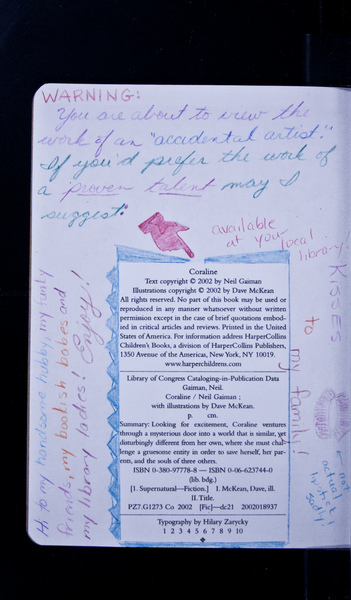 WARNING:
You are about to view the
work of an "accidental artist."
If you'd prefer the work of
a proven talent may I
suggest:
available
at your local
library.
Coraline
Text copyright © 2002 by Neil Gaiman
Illustrations copyright © 2002 by Dave McKean
All rights reserved. No part of this book may be used or
reproduced in any manner whatsoever without written
permission except in the case of brief quotations embod-
ied in critical articles and reviews. Printed in the United
States of America. For information address HarperCollins
Children's Books, a division of HarperCollins Publishers,
1350 Avenue of the Americas, New York, NY 10019.
www.harperchildrens.com
Library of Congress Cataloging-in-Publication Data
Gaiman, Neil.
Coraline / Neil Gaiman ;
with illustrations by Dave McKean.
p. cm.
Summary: Looking for excitement, Coraline ventures
through a mysterious door into a world that is similar, yet
disturbingly different from her own, where she must chal-
lenge a gruesome entity in order to save herself, her par-
ents, and the souls of three others.
ISBN 0-380-97778-8 — ISBN 0-06-623744-0
(lib. bdg.)
[1. Supernatural—Fiction.] I. McKean, Dave, ill.
II. Title.
PZ7.G1273 Co 2002 [Fic]—dc21 2002018937
Typography by Hilary Zarycky
1 2 3 4 5 6 7 8 9 10
Hi to my handsome hubby, my funky
friends, my bookish babes and
my library ladies! Enjoy!
Kisses
to
my family!
not
actual
lip